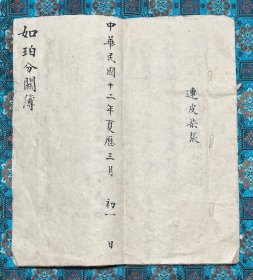 連皮柒張
中華民國十二年夏歷三月 初一 日
如珀分關簿